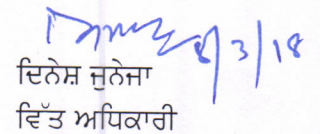 8/3/18
ਦਿਨੇਸ਼ ਜੁਨੇਜਾ
ਵਿੱਤ ਅਧਿਕਾਰੀ